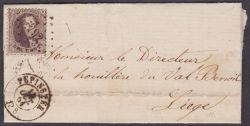 Monsieur le Directeur
de la houillère du Val Benoit
Liege
PEPINSTER